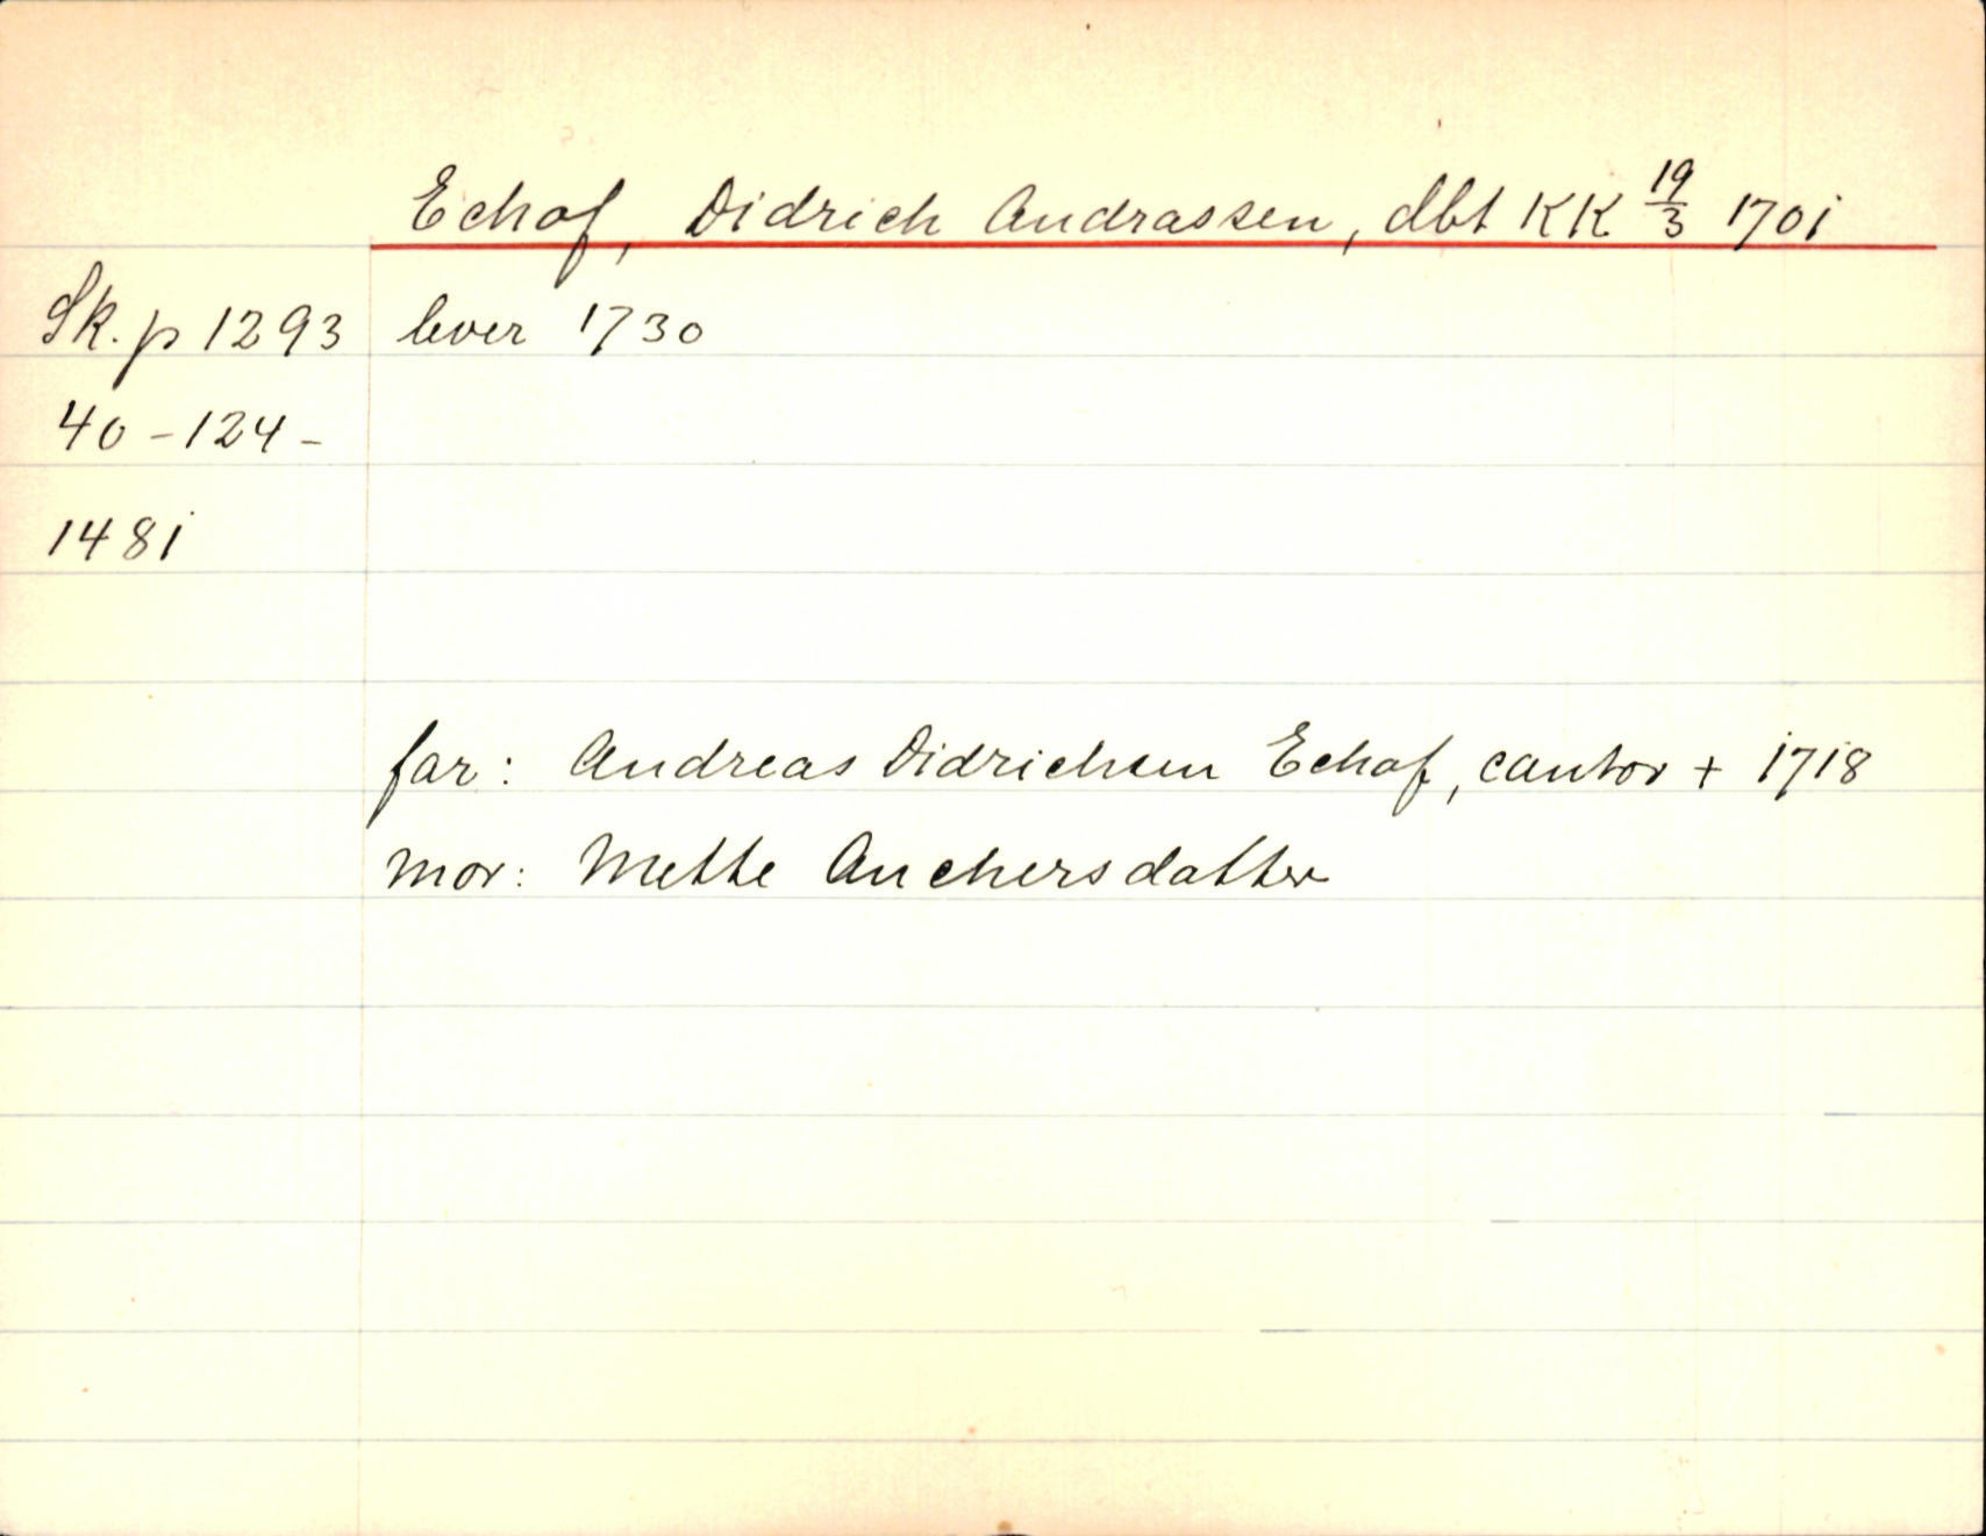 Echof, Didrich Andrassen, dbt KK 19/3 1701
Sk. p 1293 lever 1730
40-124-
1481
far: Andreas Didrichsen Echof, cantor + 1718
mor: Mette Anchersdatter